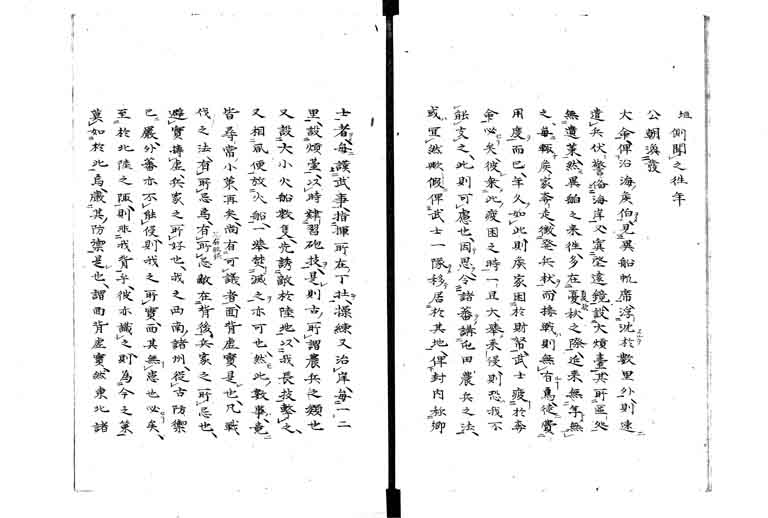 垣側聞之往年
公朝渙發
大命俾沿海侯伯見異船帆席浮沈於數里外則速
遣兵伏警備海岸又賓望遠鏡設大煩臺其所區処
無遺策然異船之来往多在夏秋之際逡来無年無
之毎輙侯家奔走徴發兵杖而接戰則無有焉徒費
用度而已年久如此則侯家困於財幣武士疲於奔
命必矣彼乗此疲困之時一旦大擧来侵則恐我不
能支之此則可慮也因思今諸蕃講屯田農兵之法
或宜然歟假俾武士一隊移居於其地俾封内称郷
士者毎護武事指揮所在丁壮操練又治岸毎一二
里設煩臺以時肄習砲技是則古所謂農兵之類也
又設大小火船數隻先誘敵於陸地以我長技撃之
又相風便放火船一擧焚滅之亦可也然此數事竟
皆尋常小策再矣尚有可議者面背虚實是也凡戰
伐之法有所忌焉有所忌敵在背後兵家之所忌也
避實擣虚兵家之所好也我之西南諸州従古防禦
已嚴外蕃亦不能侵則我之所實而其無患也必矣
至於北陸之陬則非我背乎彼亦識之則為今之策
莫如於北焉嚴其防禦是也謂面背虚實然東北諸